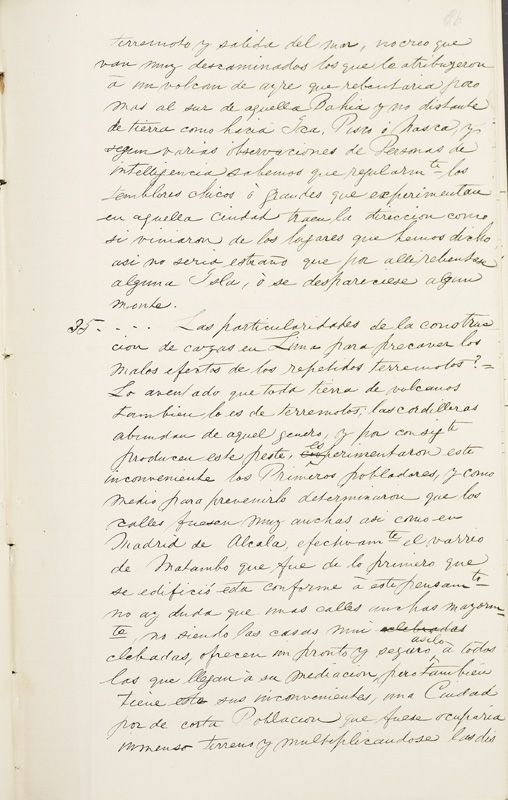 86
terremoto y salida del mar, no creo que
van muy descaminados los que le atribuyeron
à un volcan de ayre que rebentaria poco
mas al sur de aquella Bahia y no distante
de tierra como hàcia Ica, Pisco ò Nasca, y
segun varias observaciones de Personas de
inteligencia sabemos que regularmte los
temblores chicos ò grandes que experimentan
en aquella ciudad traen la direcion como
si viniaron de los lugares que hemos dicho
asi no seria estraño que por alli rebentase
alguna Isla, ò se despareciese algun
monte.
35. . . . . Las particularidades de la construc
cion de cazas en Lima para precaver los
malos efectos de los repetidos terremotos? =
Lo aventado que toda tierra de volcanos
tambien lo es de terremotos, las cordilleras
abundan de aquel genero, y por consigte
producen este peste, esperimentaron este
inconveniente los Primeros pobladores, y como
medio para prevenirlo determinaron que las
calles fuesen muy anchas asi como en
Madrid de Alcala, efectivamte el varrio
de Matambo que fue de lo primero que
se edificiò esta conforme à este pensamto
no ay duda que unas calles anchas mayorm
te, no siendo las casas mui
clebadas, ofrecen un pronto y seguro asilo à todos
los que llegan à su mediacion, pero tambien
tiene esto sus inconvenientes, una Ciudad
por de corta Poblacion que fuese ocuparia
immenso terreno y multiplicandose las dis